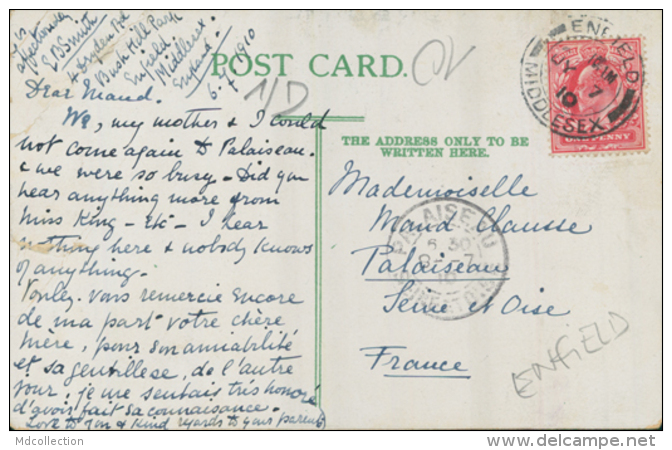 yrs
affectionately
E B Smith
4 Dryden Rd
Bush Hill Park
Enfield
Middlesex.
England.
6.7.1910
POST CARD.
1/D
ENFIELD
MIDDLESEX
JY 7
10
ONE PENNY
Dear Maud.
We, my mother & I could
not come again to Palaiseau.
& we were so busy - Did you
hear anything more from
Miss King - etc - I hear
nothing here & nobody knows
of anything.
Voulez-vous remercier encore
de ma part votre chère
mère, pour son amiabilité
et sa gentillesse, de l'autre
jour; je me sentais très honoré
d'avoir fait sa connaissance.
Love to you & kind regards to your parents
THE ADDRESS ONLY TO BE
WRITTEN HERE.
Mademoiselle
Maud Clausse
Palaiseau
Seine et Oise
France
PALAISEAU
6 30
8-7
10
SEINE ET OISE
ENFIELD
Mdcollection
www.delcampe.net